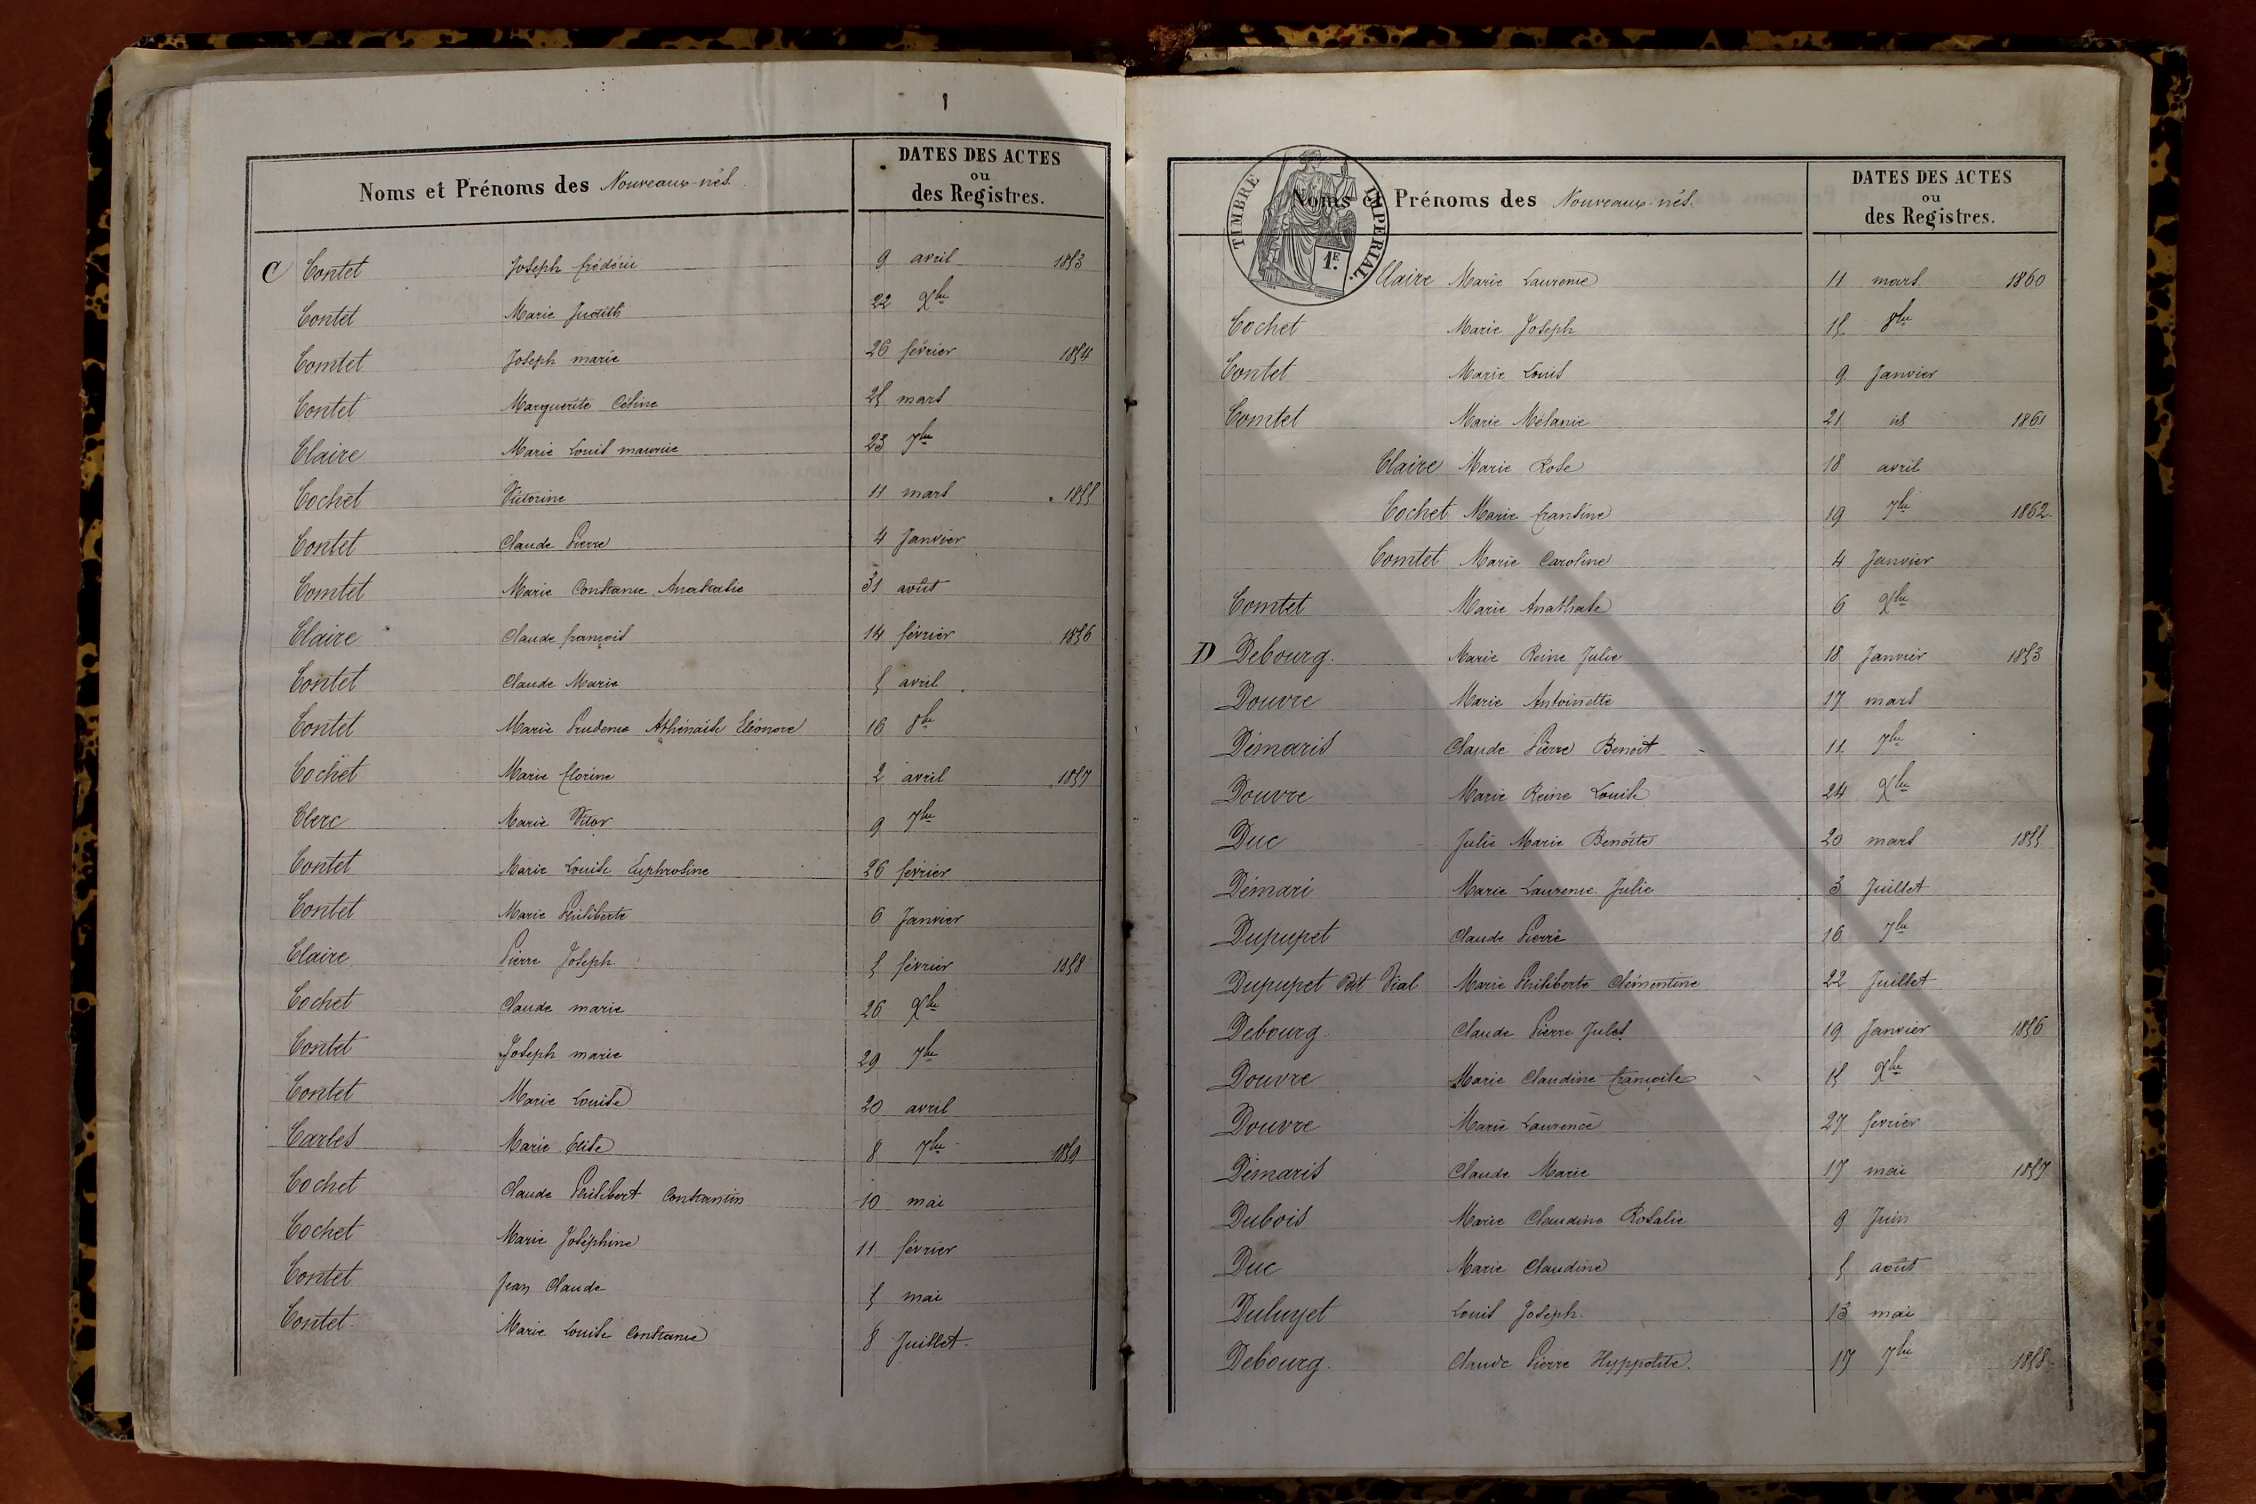 Noms et Prénoms des Nouveaux-nés.
DATES DES ACTES
ou
des Registres.
C Contet Joseph frédéric 9 avril 1853
Contet Marie Judith 22 Xbre
Comtet Joseph marie 26 février 1854
Contet Marguerite Céline 25 mars
Claire Marie Louis maurice 23 7bre
Cochet Victorine 11 mars 1855
Contet Claude Pierre 4 Janvier
Comtet Marie Constance 31 août
Claire Claude françois 14 février 1856
Contet Claude Marie 5 avril
Contet Marie Prudence Athénaïse Eléonore 16 8bre
Cochet Marie florine 2 avril 1857
Clerc Marie Victor 9 7bre
Contet Marie Louise Euphrosine 26 février
Contet Marie Philiberte 6 Janvier
Claire Pierre Joseph 5 février 1858
Cochet Claude marie 26 Xbre
Contet Joseph marie 29 7bre
Contet Marie Louise 20 avril
Carles Marie Elise 8 7bre 1859
Cochet Claude Philibert Constantin 10 mai
Cochet Marie Joséphine 11 février
Contet Jean Claude 5 mai
Contet Marie Louise Constance 8 Juillet
TIMBRE IMPERIAL.
1E.
Noms et Prénoms des Nouveaux-nés.
DATES DES ACTES
ou
des Registres.
Claire Marie Laurence 11 mars 1860
Cochet Marie Joseph 15 8bre
Contet Marie Louis 9 Janvier
Comtet Marie Mélanie 21 id 1861
Claire Marie Rose 18 avril
Cochet Marie fransine 19 7bre 1862
Comtet Marie Caroline 4 Janvier
Comtet Marie Anathase 6 Xbre
D Debourg. Marie Reine Julie 18 Janvier 1853
Douvre Marie Antoinette 17 mars
Démaris Claude Pierre Benoit 11 7bre
Douvre Marie Reine Louise 24 Xbre
Duc Julie Marie Benoite 20 mars 1855
Démari Marie Laurence Julie 3 Juillet
Dupupet Claude Pierre 16 7bre
Dupupet Vial Marie Philiberte Clémentine 22 Juillet
Debourg Claude Pierre Jules 19 Janvier 1856
Douvre Marie Claudine françoise 15 Xbre
Douvre Marie Laurence 27 février
Démaris Claude Marie 17 mai 1857
Dubois Marie Claudine Rosalie 9 Juin
Duc Marie Claudine 5 août
Duluyet Louis Joseph 13 mai
Debourg. Claude Pierre Hyppolite. 17 7bre 1858